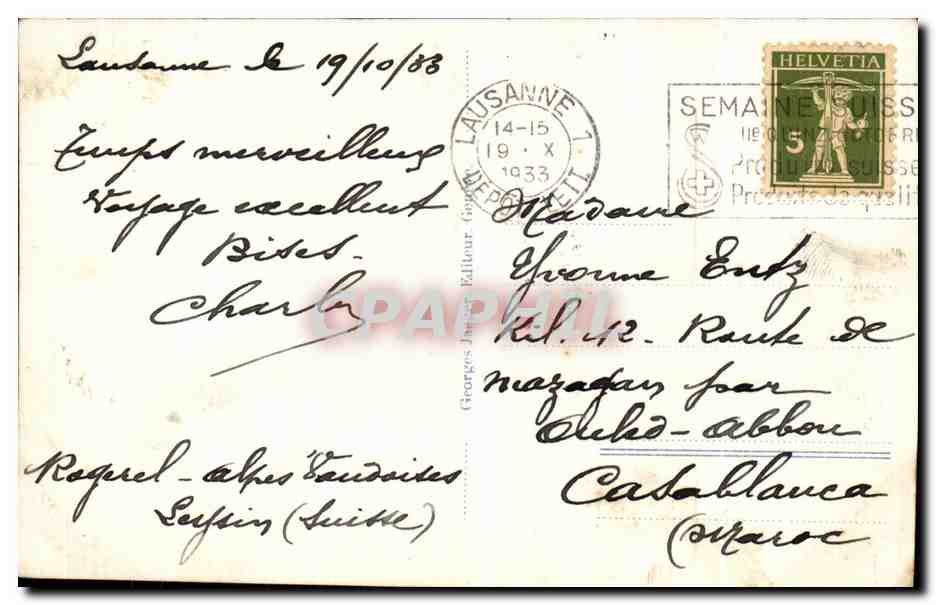 Lausanne le 19/10/33
Temps merveilleux
Voyage excellent
Bises.
Charly
Rogerel - Alpes Vaudoises
Leysin (Suisse)
Georges Jaeger, Editeur, Genève
LAUSANNE 1
14-15
19 · X
1933
SEMAINE SUISS
Produits suisse
Produits de qualit
HELVETIA
3
Madame
Yvonne Entz
Kil. 12 - Route de
Mazagan par
Oulad-Abbou
Casablanca
(Maroc
CPAPHIL